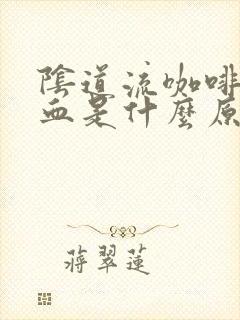 陰道流咖啡
血是什麼原
蔣翠蓮